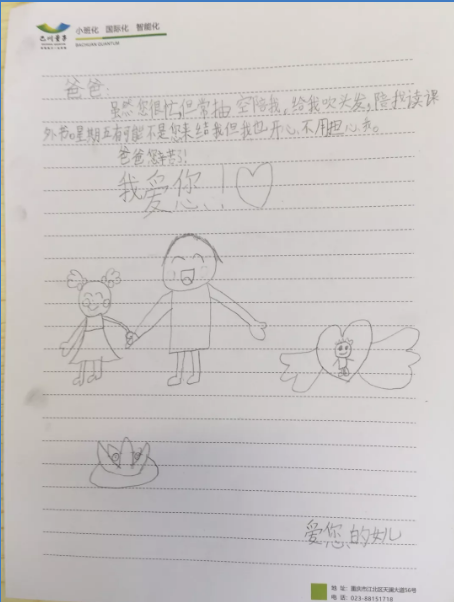 巴川量子
小班化 国际化 智能化
BACHUAN QUANTUM
爸爸：
虽然您很忙，但常抽空陪我，给我吹头发，陪我读课
外书。星期五有可能不是您来结我但我也开心不用担心我。
爸爸您辛苦了！
我爱你！
爱您！
爱您的女儿
地 址：重庆市江北区天澜大道56号
电 话：023-88151718